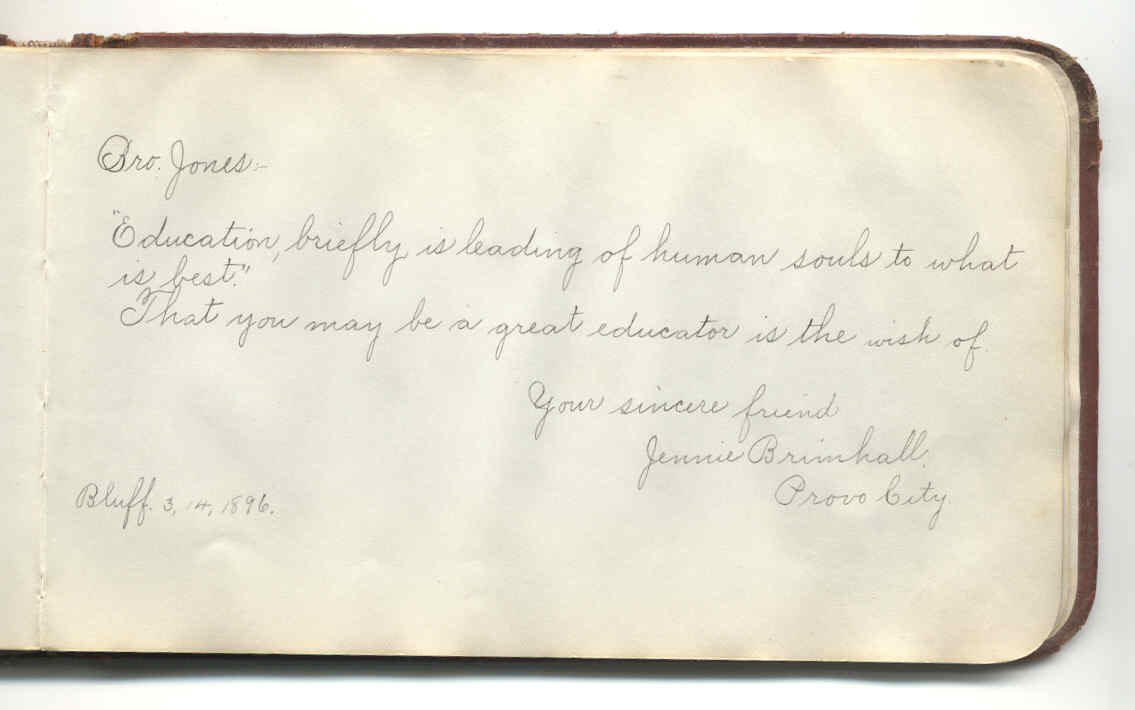 Bro. Jones:-
"Education, briefly, is leading of human souls to what
is best."
That you may be a great educator is the wish of.
Your sincere friend
Jennie Brimhall.
Provo City
Bluff. 3, 14, 1896.